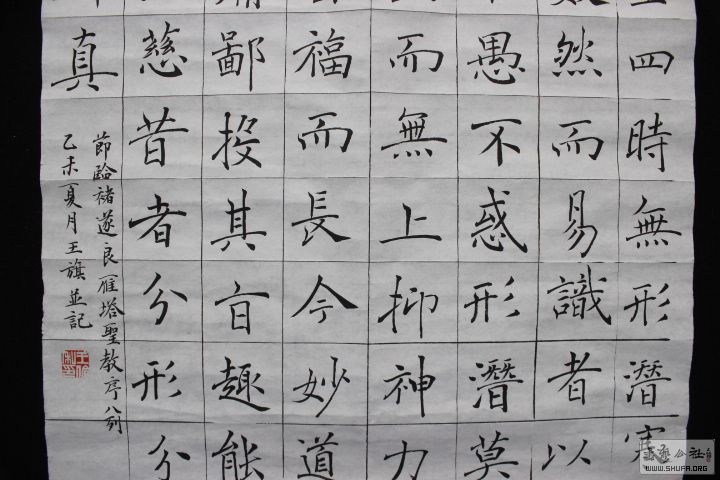 四時無形潛寒
然而易識者以
愚不惑形潛莫
而無上抑神力
福而長今妙道
鄙投其旨趣能
慈昔者分形分
真
節臨褚遂良雁塔聖教序八列
乙未夏月王旗並記
WWW.SHUFA.ORG